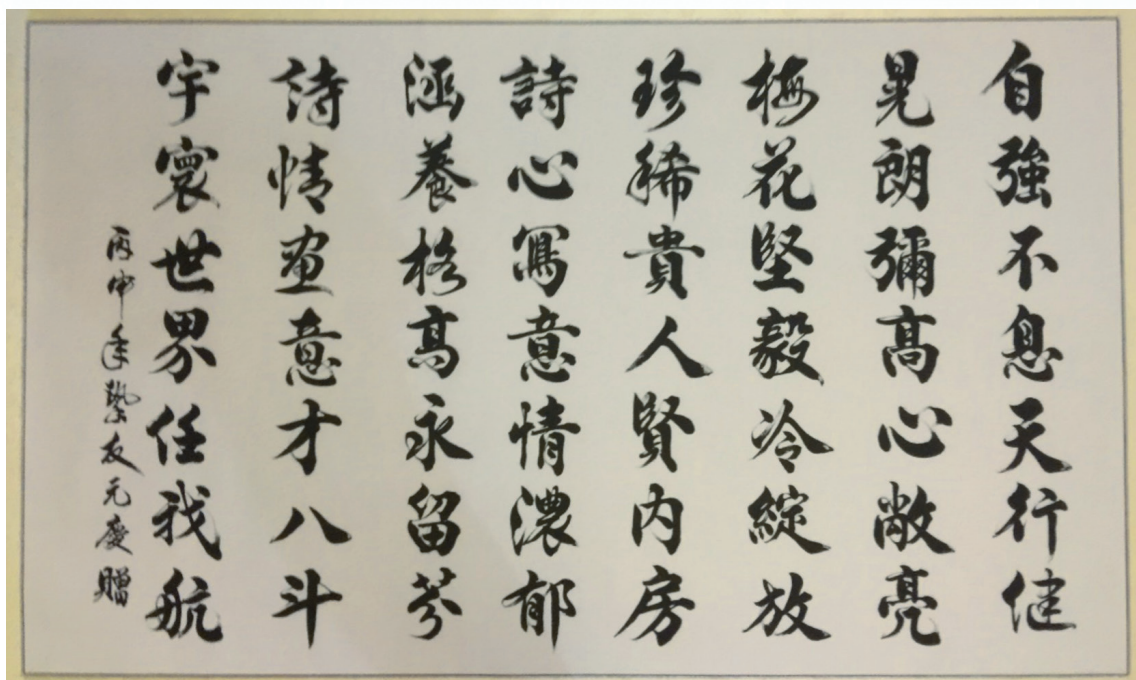 自強不息天行健
晃朗彌高心敞亮
梅花堅毅冷綻放
珍稀貴人賢内房
詩心寫意情濃郁
涵養格高永留芬
詩情畫意才八斗
宇寰世界任我航
丙申年摯友元慶贈